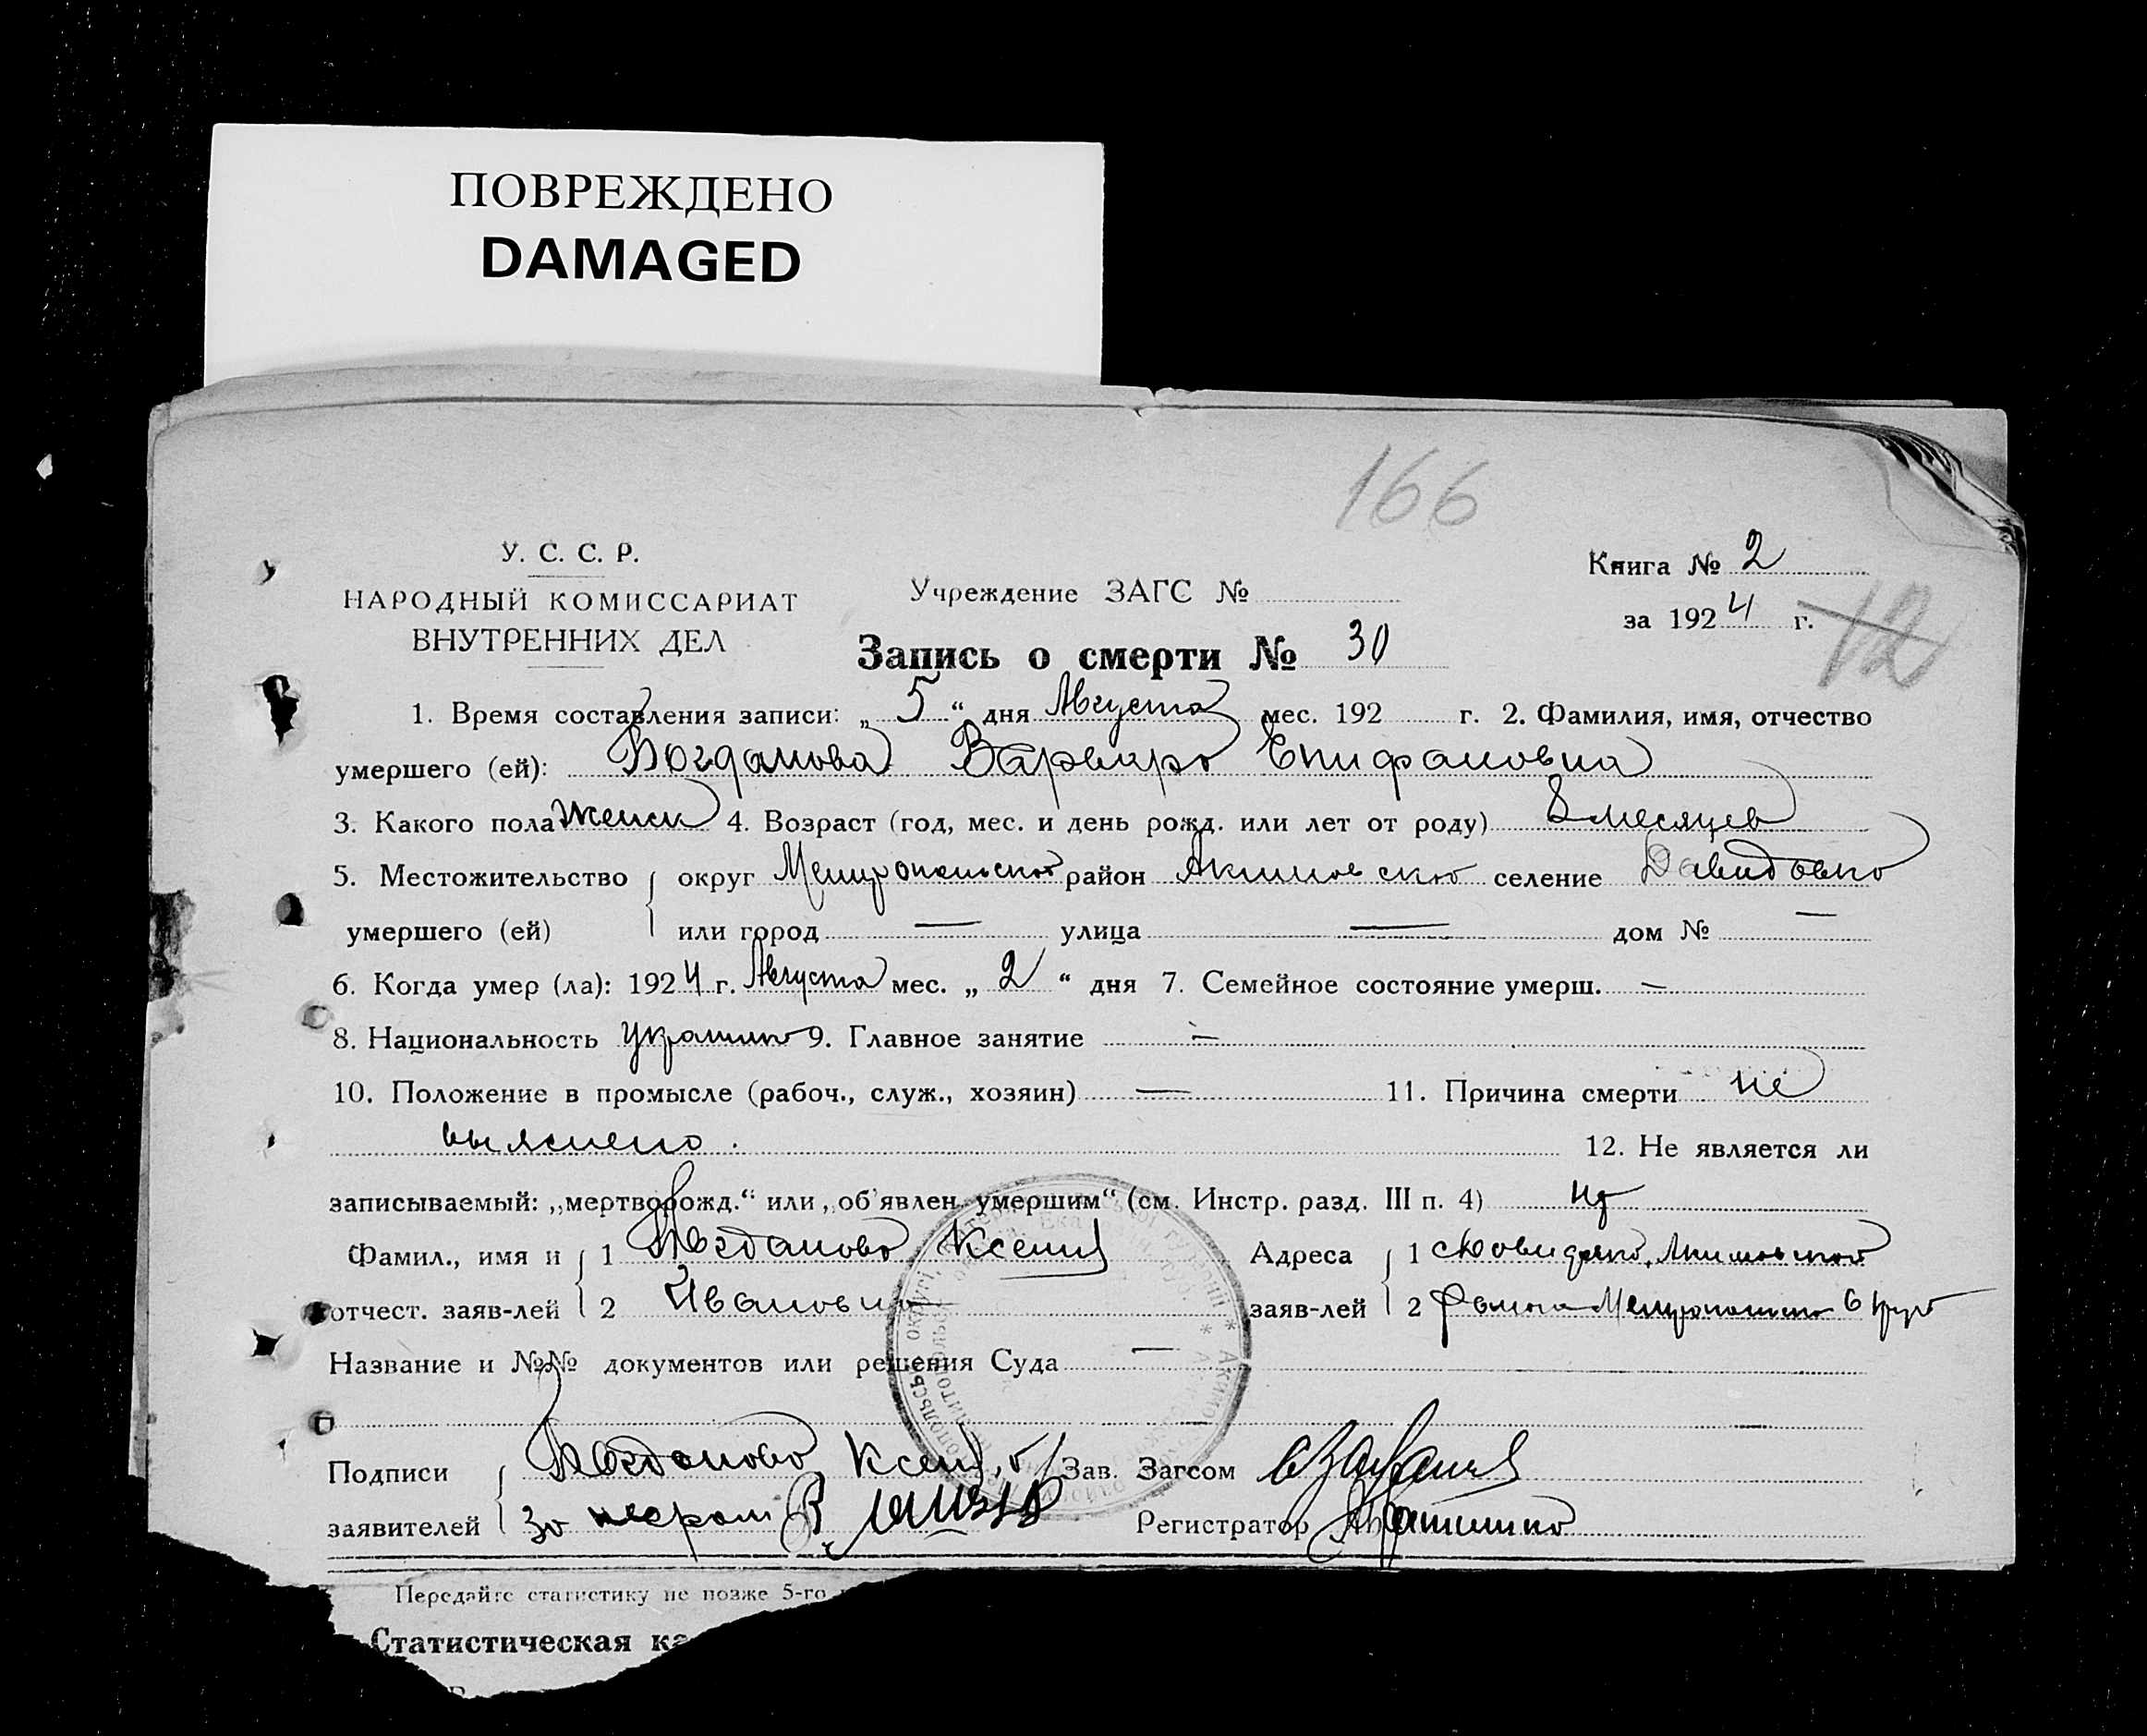 ПОВРЕЖДЕНО
DAMAGED
166
У. С. С. Р.
НАРОДНЫЙ КОМИССАРИАТ
ВНУТРЕННИХ ДЕЛ
Учреждение ЗАГС №
Книга № 2
за 1924 г.
12
Запись о смерти № 30
1. Время составления записи: „5“ дня Августа мес. 192 г. 2. Фамилия, имя, отчество
умершего (ей): Богданова Варвара Епифановна
3. Какого пола Женск 4. Возраст (год, мес. и день рожд. или лет от роду) 8 месяцев
5. Местожительство округ Мелитопольской район Акимовской селение Давидовка
умершего (ей) или город — улица — дом № —
6. Когда умер (ла): 1924 г. Августа мес. „2“ дня 7. Семейное состояние умерш. —
8. Национальность 9. Главное занятие —
10. Положение в промысле (рабоч., служ., хозяин) — 11. Причина смерти не
выяснено.
12. Не является ли
записываемый: „мертворожд.“ или „об'явлен умершим“ (см. Инстр. разд. III п. 4)
Фамил., имя и 1 Богданова Ксения Адреса 1
отчест. заяв-лей 2 Ивановна заяв-лей 2
Название и №№ документов или решения Суда —
Подписи Богданова Зав. Загсом
заявителей За Регистратор
Передайте статистику не позже 5-го
Статистическая ка